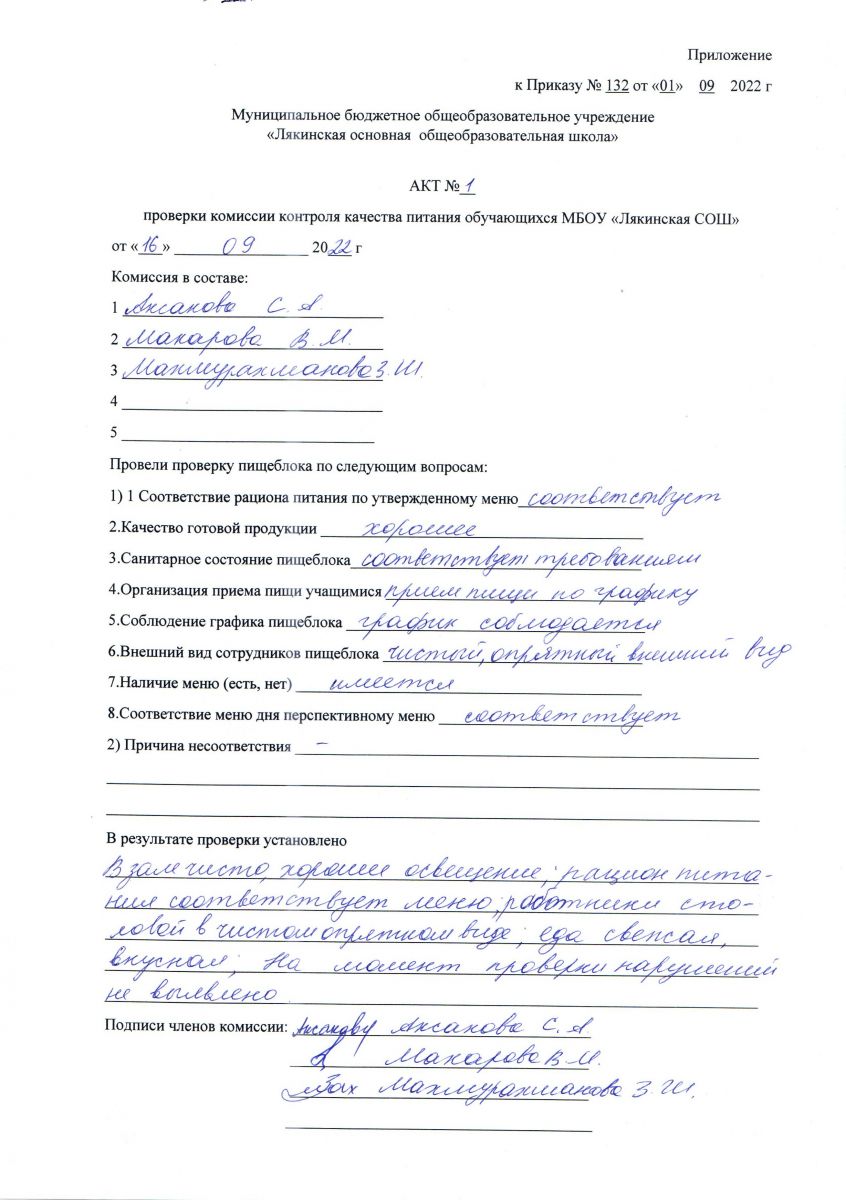 Приложение
к Приказу № 132 от «01» 09 2022 г
Муниципальное бюджетное общеобразовательное учреждение
«Лякинская основная общеобразовательная школа»
АКТ № 1
проверки комиссии контроля качества питания обучающихся МБОУ «Лякинская СОШ»
от «16» 09 2022 г
Комиссия в составе:
1 Аксанова С. А.
2 Макарова В. М.
3 Махмурахманова З. Ш.
4
5
Провели проверку пищеблока по следующим вопросам:
1) 1 Соответствие рациона питания по утвержденному меню соответствует
2.Качество готовой продукции хорошее
3.Санитарное состояние пищеблока соответствует требованиям
4.Организация приема пищи учащимися прием пищи по графику
5.Соблюдение графика пищеблока график соблюдается
6.Внешний вид сотрудников пищеблока чистый, опрятный внешний вид
7.Наличие меню (есть, нет) имеется
8.Соответствие меню дня перспективному меню соответствует
2) Причина несоответствия –
В результате проверки установлено
В зале чисто, хорошее освещение; рацион пита-
ния соответствует меню; работники сто-
ловой в чистом опрятном виде; еда свежая,
вкусная; На момент проверки нарушений
не выявлено.
Подписи членов комиссии: Аксанова С. А
Макарова В. М.
Махмурахманова З. Ш.